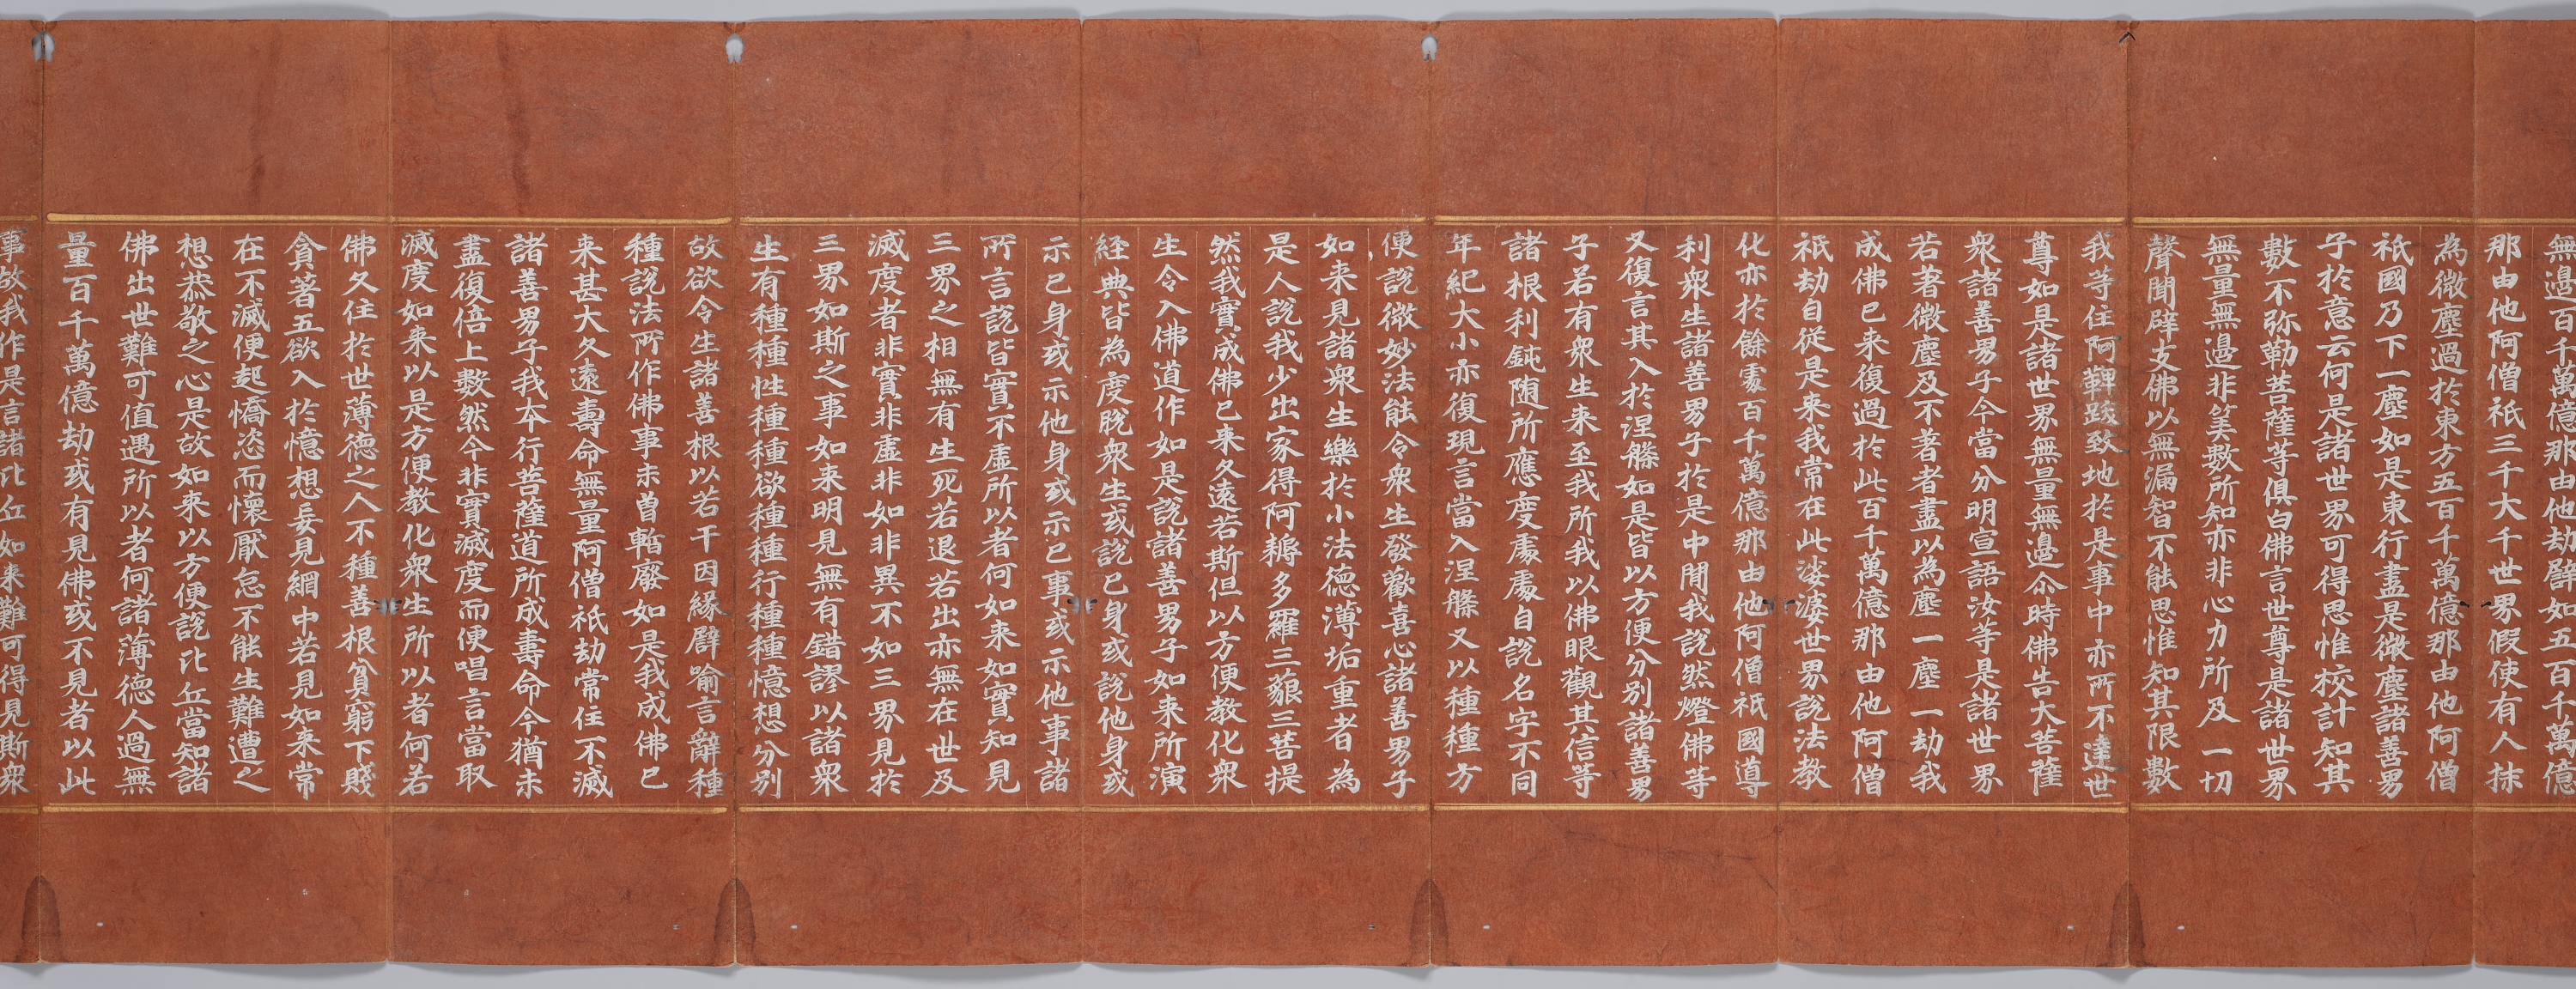 無邊百千萬億那由他劫譬如五百千萬億
那由他阿僧祇三千大千世界假使有人抹
為微塵過於東方五百千萬億那由他阿僧
祇國乃下一塵如是東行盡是微塵諸善男
子於意云何是諸世界可得思惟校計知其
數不弥勒菩薩等俱白佛言世尊是諸世界
無量無邊非筭數所知亦非心力所及一切
聲聞辟支佛以無漏智不能思惟知其限數
我等住阿鞞跋致地於是事中亦所不達世
尊如是諸世界無量無邊尒時佛告大菩薩
衆諸善男子今當分明宣語汝等是諸世界
若著微塵及不著者盡以為塵一塵一劫我
成佛已来復過於此百千萬億那由他阿僧
祇劫自從是来我常在此娑婆世界說法教
化亦於餘處百千萬億那由他阿僧祇國導
利衆生諸善男子於是中間我說然燈佛等
又復言其入於涅槃如是皆以方便分別諸善男
子若有衆生来至我所我以佛眼觀其信等
諸根利鈍随所應度處處自說名字不同
年紀大小亦復現言當入涅槃又以種種方
便說微妙法能令衆生發歡喜心諸善男子
如来見諸衆生樂於小法德薄垢重者為
是人說我少出家得阿耨多羅三藐三菩提
然我實成佛已来久遠若斯但以方便教化衆
生令入佛道作如是說諸善男子如来所演
経典皆為度脫衆生或說己身或說他身或
示己身或示他身或示己事或示他事諸
所言說皆實不虛所以者何如来如實知見
三界之相無有生死若退若出亦無在世及
滅度者非實非虛非如非異不如三界見於
三界如斯之事如来明見無有錯謬以諸衆
生有種種性種種欲種種行種種憶想分別
故欲令生諸善根以若干因緣譬喻言辭種
種說法所作佛事未曾暫廢如是我成佛已
来甚大久遠壽命無量阿僧祇劫常住不滅
諸善男子我本行菩薩道所成壽命今猶未
盡復倍上數然今非實滅度而便唱言當取
滅度如来以是方便教化衆生所以者何若
佛久住於世薄德之人不種善根貧窮下賤
貪著五欲入於憶想妄見網中若見如来常
在不滅便起憍恣而懷厭怠不能生難遭之
想恭敬之心是故如来以方便說比丘當知諸
佛出世難可值遇所以者何諸薄德人過無
量百千萬億劫或有見佛或不見者以此
事故我作是言諸比丘如来難可得見斯衆